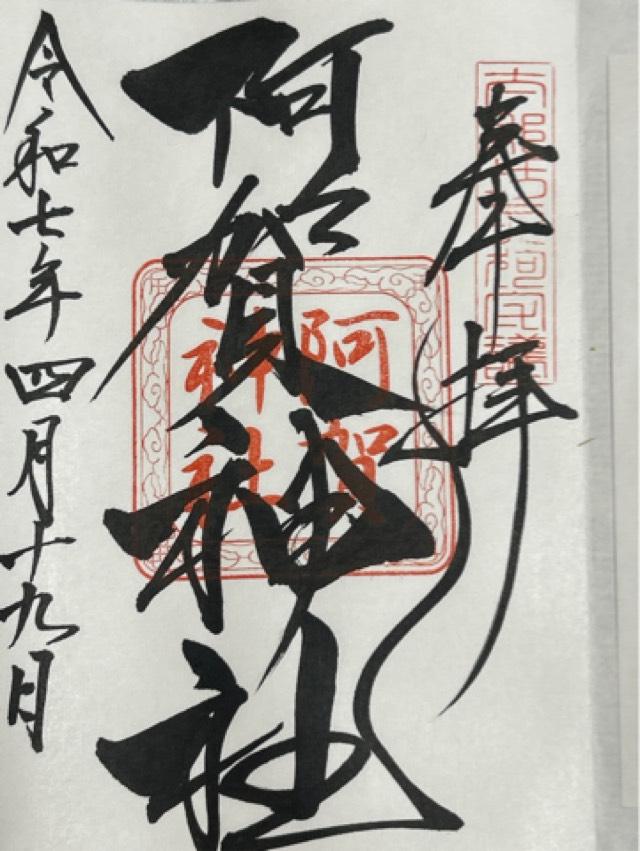 奉拝
阿賀神社
阿賀
神社
令和七年四月十九日